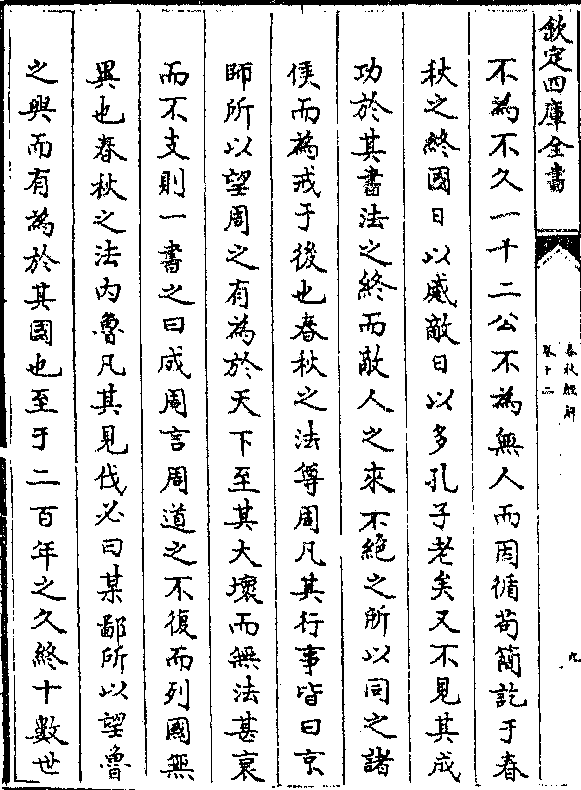 欽定四庫全書
春秋經解
卷十二
九
不為不久一十二公不為無人而因循苟簡訖于春
秋之終國日以蹙敵日以多孔子老矣又不見其成
功於其書法之終而敵人之來不絶之所以同之諸
侯而為戒于後也春秋之法尊周凡其行事皆曰京
師所以望周之有為於天下至其大壞而無法甚衰
而不支則一書之曰成周言周道之不復而列國無
異也春秋之法内魯凡其見伐必曰某鄙所以望魯
之興而有為於其國也至于二百年之久終十數世